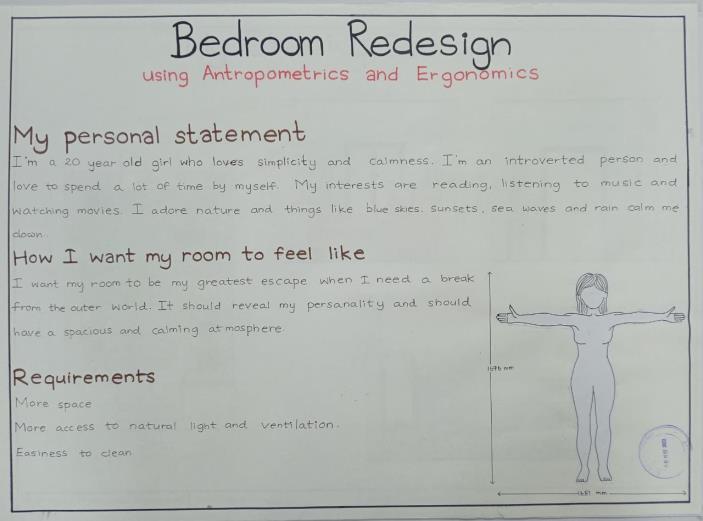 Bedroom Redesign
using Antropometrics and Ergonomics
My personal statement
I'm a 20 year old girl who loves simplicity and calmness. I'm an introverted person and
love to spend a lot of time by myself. My interests are reading, listening to music and
watching movies. I adore nature and things like blue skies, sunsets, sea waves and rain calm me
down.
How I want my room to feel like
I want my room to be my greatest escape when I need a break
from the outer world. It should reveal my personality and should
have a spacious and calming atmosphere.
Requirements
More space
More access to natural light and ventilation.
Easiness to clean
mm
mm